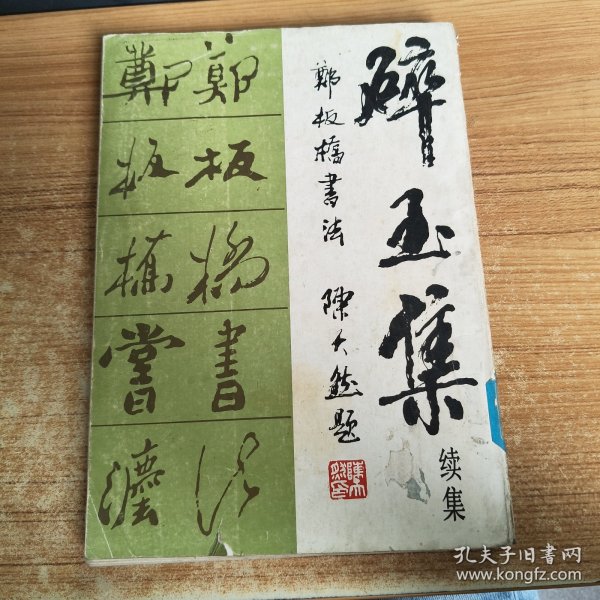 碎玉集
续集
鄭板橋書法
陳大然題
鄭板橋書法
鄭板橋書灋
孔夫子旧书网
www.kongfz.com